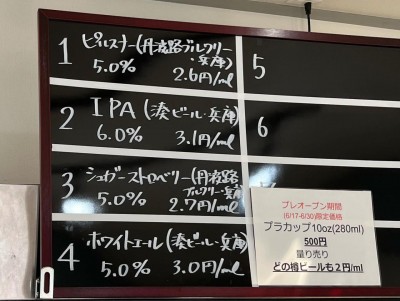 1 ピルスナー(丹波路ブルワリー
・兵庫)
5.0% 2.6円/ml
2 IPA(湊ビール・兵庫)
6.0% 3.1円/ml
3 シュガーストロベリー(丹波路
ブルワリー・兵庫)
5.0% 2.7円/ml
4 ホワイトエール(湊ビール・兵庫)
5.0% 3.0円/ml
5
6
プレオープン期間
(6/17-6/30)限定価格
プラカップ10oz(280ml)
500円
量り売り
どの樽ビールも2円/ml